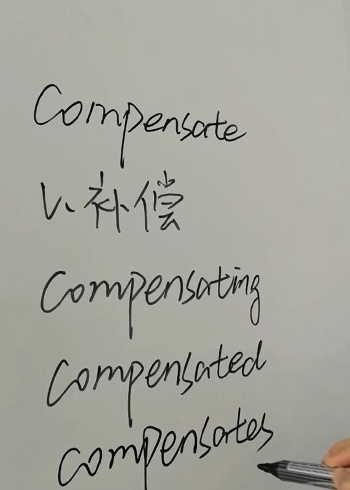 Compensate
v. 补偿
Compensating
Compensated
Compensates